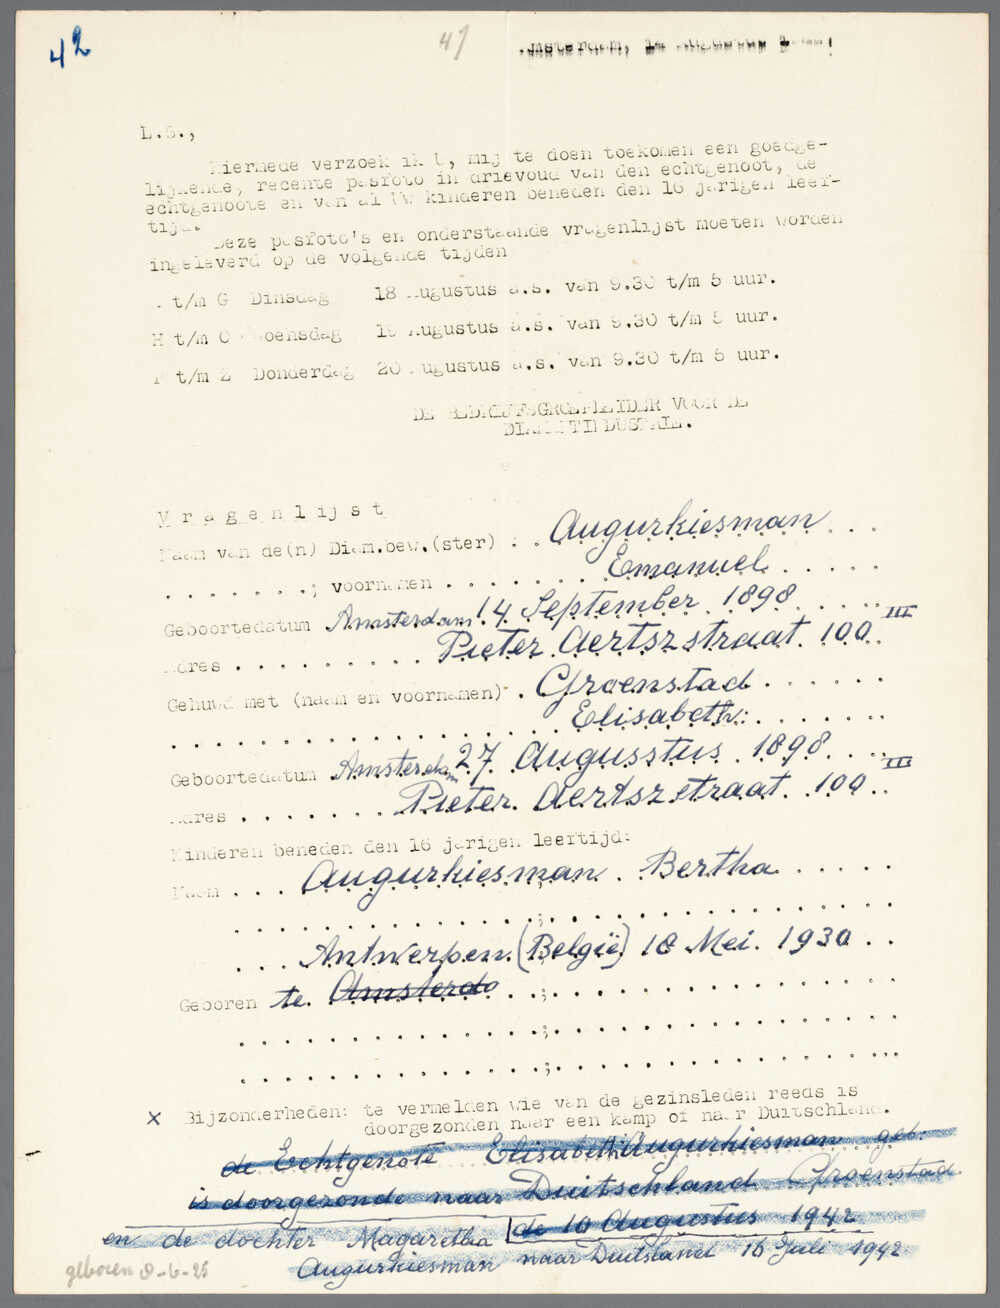 42
47
L.S.,
Hiermede verzoek ik U, mij te doen toekomen een goedge-
lijkende, recente pasfoto in drievoud van den echtgenoot, de
echtgenoote en van al Uw kinderen beneden den 16 jarigen leef-
tijd.
Deze pasfoto's en onderstaande vragenlijst moeten worden
ingeleverd op de volgende tijden
t/m G Dinsdag 18 Augustus a.s. van 9.30 t/m 5 uur.
H t/m O Woensdag 19 Augustus a.s. van 9.30 t/m 5 uur.
P t/m Z Donderdag 20 Augustus a.s. van 9.30 t/m 5 uur.
DE BEDRIJFSGROEPLEIDER VOOR DE
DIAMANTINDUSTRIE.
V r a g e n l i j s t
Naam van de(n) Diam.bew.(ster) : . Augurkiesman . . .
. . . . . . . ; voornamen . . . . . . . Emanuel . . . . .
Geboortedatum Amsterdam 14 September 1898 . . . . .
Adres . . . . . . . . . Pieter Aertszstraat 100 III
Gehuwd met (naam en voornamen) . Groenstad . . . . . .
. . . . . . . . . . . . . . . . . Elisabeth: . . . . . . .
Geboortedatum Amsterdam 27 Augusstus 1898 . . .
Adres . . . . . . . Pieter Aertszstraat 100 III
Kinderen beneden den 16 jarigen leeftijd:
Naam . . . Augurkiesman . Bertha . . . . .
. . . . . . . . . . . . . . . ; . . . . . . . . . . . . . . . .
. . . Antwerpen (België) 18 Mei. 1930 . .
Geboren te Amsterda . . ; . . . . . . . . . . . . . . .
. . . . . . . . . . . . . . . ; . . . . . . . . . . . . . . . .
. . . . . . . . . . . . . . . ; . . . . . . . . . . . . . . . .
x Bijzonderheden: te vermelden wie van de gezinsleden reeds is
doorgezonden naar een kamp of naar Duitschland.
de Echtgenote Elisabeth Augurkiesman geb:
is doorgezonde naar Duitschland Groenstad
de 10 Augustus 1942
en de dochter Magaretha
Augurkiesman naar Duitsland 16 Juli 1942
geboren 8-6-25